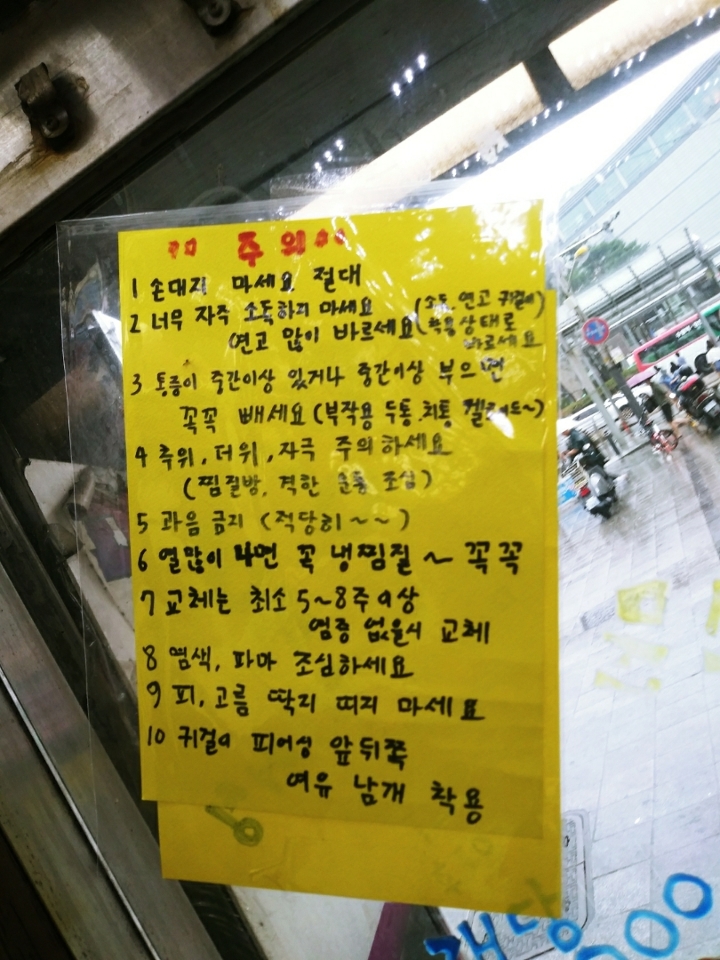 주의
1 손대지 마세요 절대
2 너무 자주 소독하지 마세요 (소독, 연고 귀걸이
연고 많이 바르세요 착용 상태로
바르세요)
3 통증이 중간이상 있거나 중간이상 부으면
꼭꼭 빼세요 (부작용 두통, 치통 켈로이드~)
4 추위, 더위, 자극 주의하세요
(찜질방, 격한 운동 조심)
5 과음 금지 (적당히~~)
6 열많이 나면 꼭 냉찜질 ~ 꼭꼭
7 교체는 최소 5~8주이상
염증 없을시 교체
8 염색, 파마 조심하세요
9 피, 고름 딱지 띠지 마세요
10 귀걸이 피어싱 앞뒤쪽
여유 남개 착용
개당
000